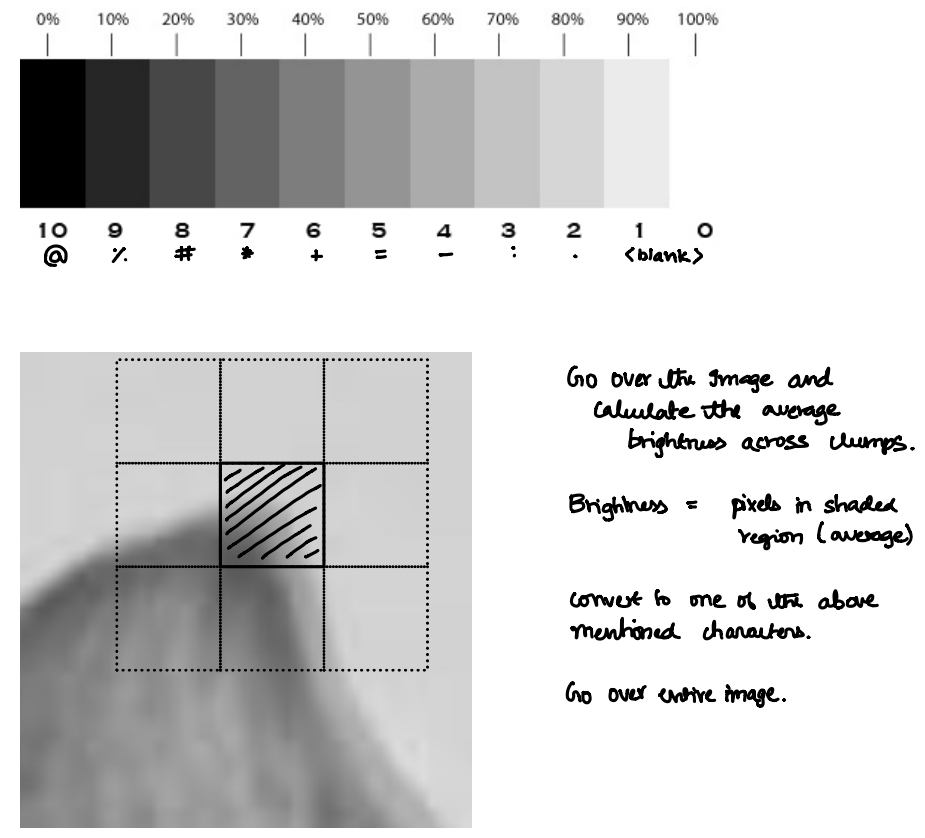 0% 10% 20% 30% 40% 50% 60% 70% 80% 90% 100%
10 9 8 7 6 5 4 3 2 1 0
@ % # * + = - : . <blank>
Go over the image and
calculate the average
brightness across clumps.
Brightness = pixels in shaded
region (average)
convert to one of the above
mentioned characters.
Go over entire image.